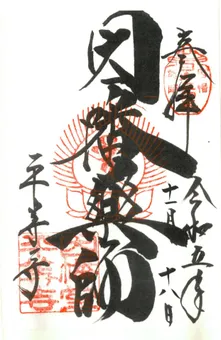 奉拝
令和五年
十一月十八日
因幡薬師
平等寺